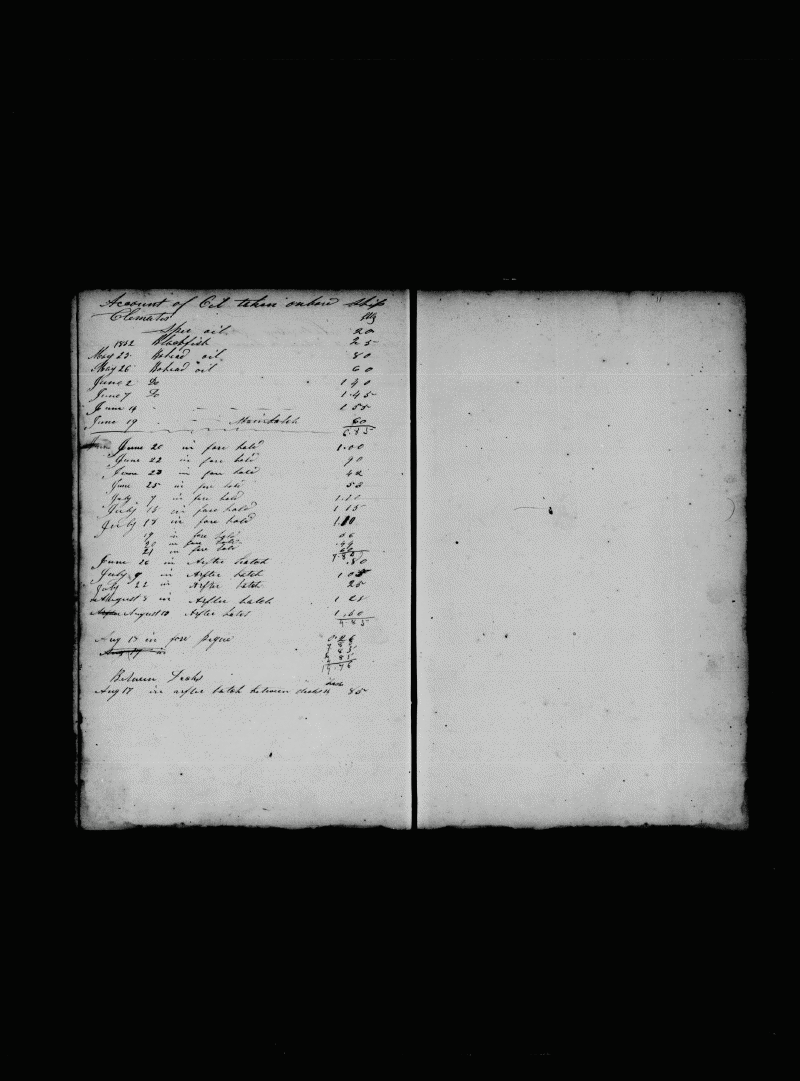 Account of Oil taken onbord Ship
Clematis Blg
Spur oil 20
1852 Blackfish 25
May 23 Bohead oil 80
May 26 Bohead oil 60
June 2 Do 1 40
June 7 Do 1.45
June 14 - - - 1 55
June 19 - - Main hatch 60
6.85
June 20 in fore hold 1.00
June 22 in fore hold 90
June 23 in fore hold 42
June 25 in fore hold 58
July 7 in fore hold 1.10
July 15 in fore hold 1 15
July 18 in fore hold 1.10
19 in fore hold
20 in fore hold .44
21 in fore hold
June 26 in Arfter hatch .80
July 9 in Arfter hatch 1 05
July 22 in Arfter hatch 25
August 3 in Arfter hatch 1 25
August 10 Arfter hatch 1.60
4 85
Aug 17 in fore peque 0.26
Aug 17 in
Between Decks
Aug 17 in arfter hatch between decks 85